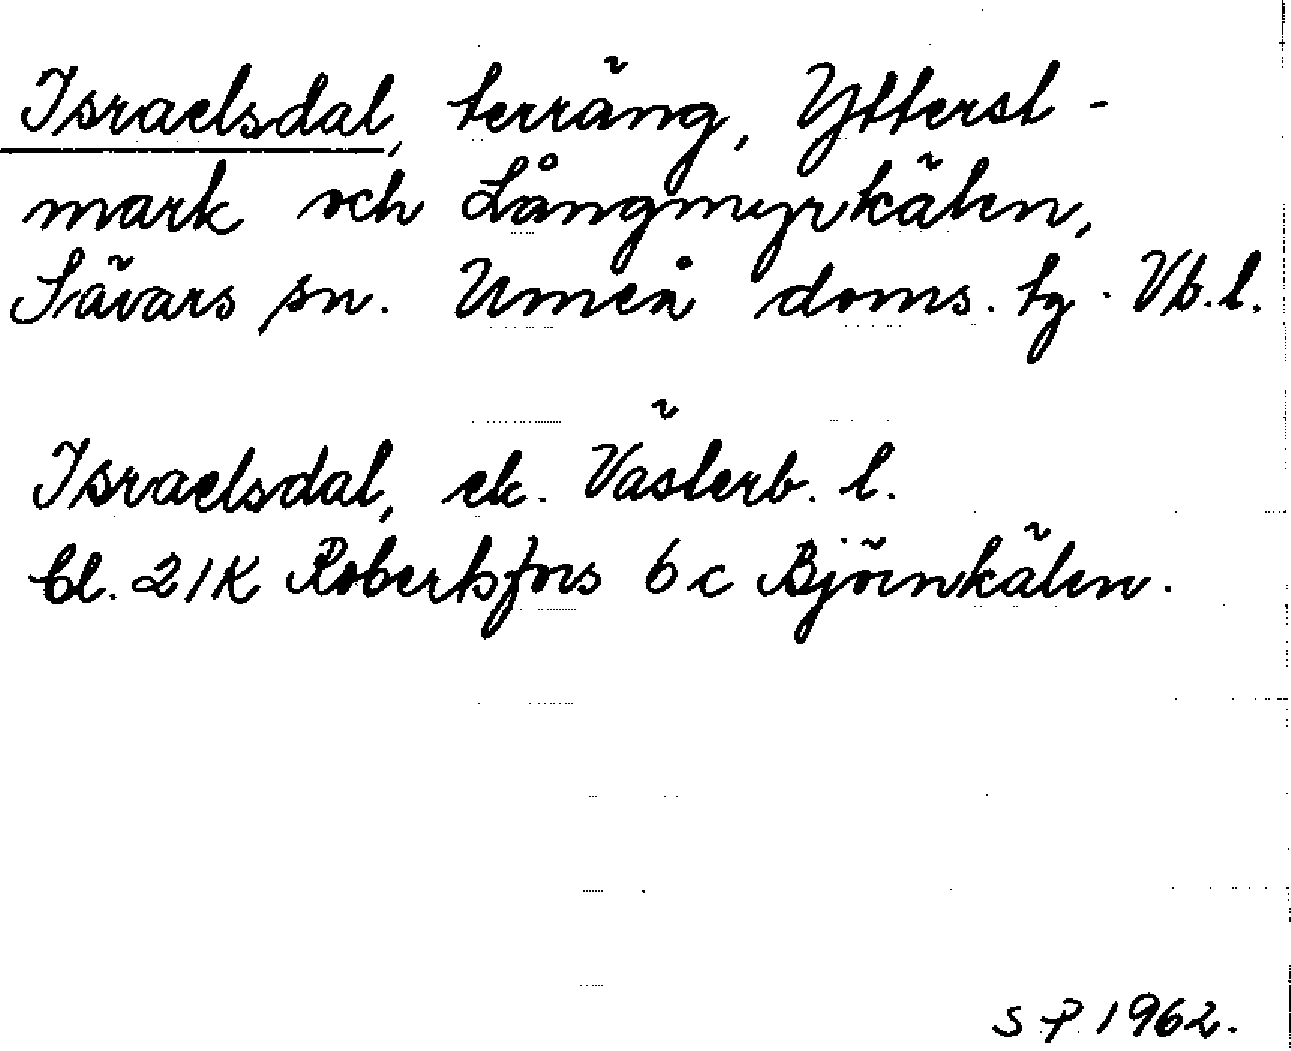 Israelsdal, terräng, Ytterst-
mark och Långmyrkälen,
Sävars sn. Umeå doms. tg. Vb. l.
Israelsdal, ek. Västerb. l.
bl. 21K Robertsfors 6 c Björnkälen.
S P 1962.